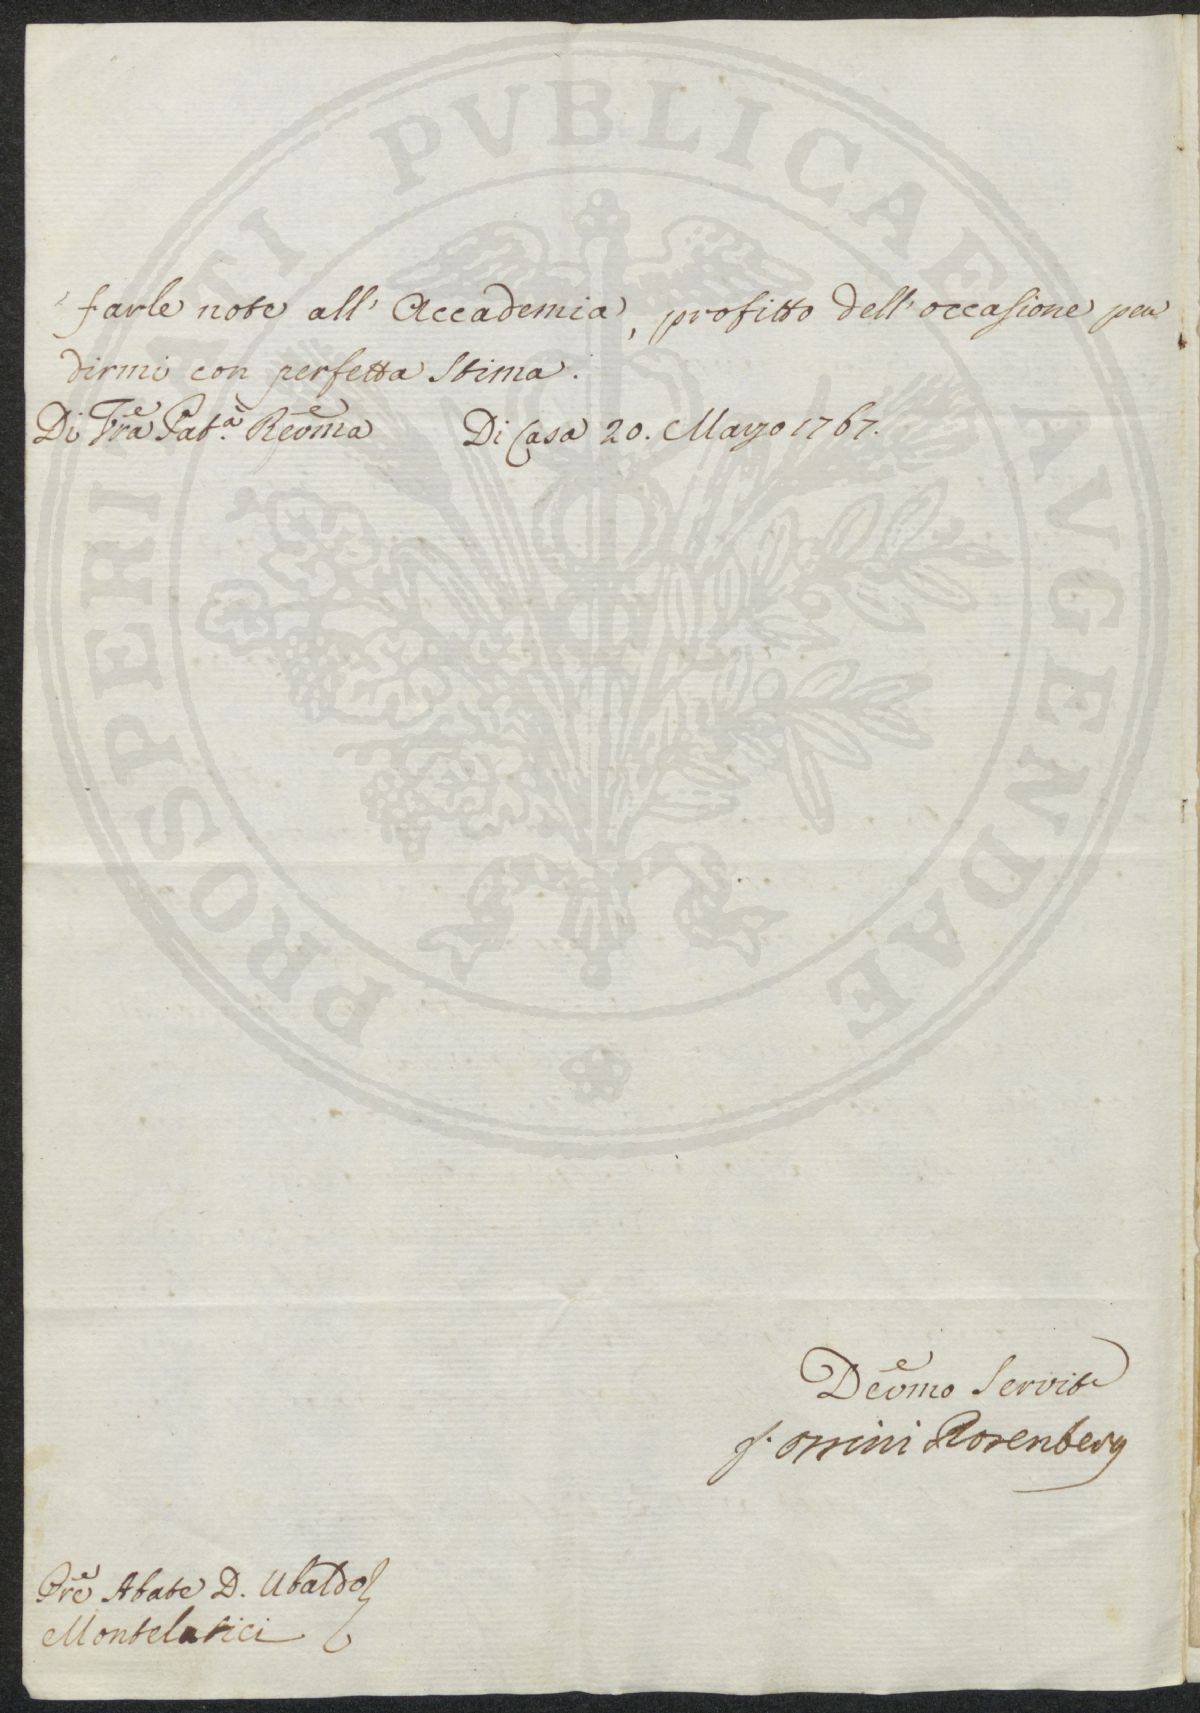 PROSPERITATI PVBLICAE AVGENDAE
farle note all' Accademia, profitto dell' occasione per
dirmi con perfetta Stima.
Di Vra Patà Reṽma Di Casa 20. Mayo 1767.
Deṽmo Servite
f. Orsini Rosenberg
Pre Abate D. Ubaldo
Montelatici